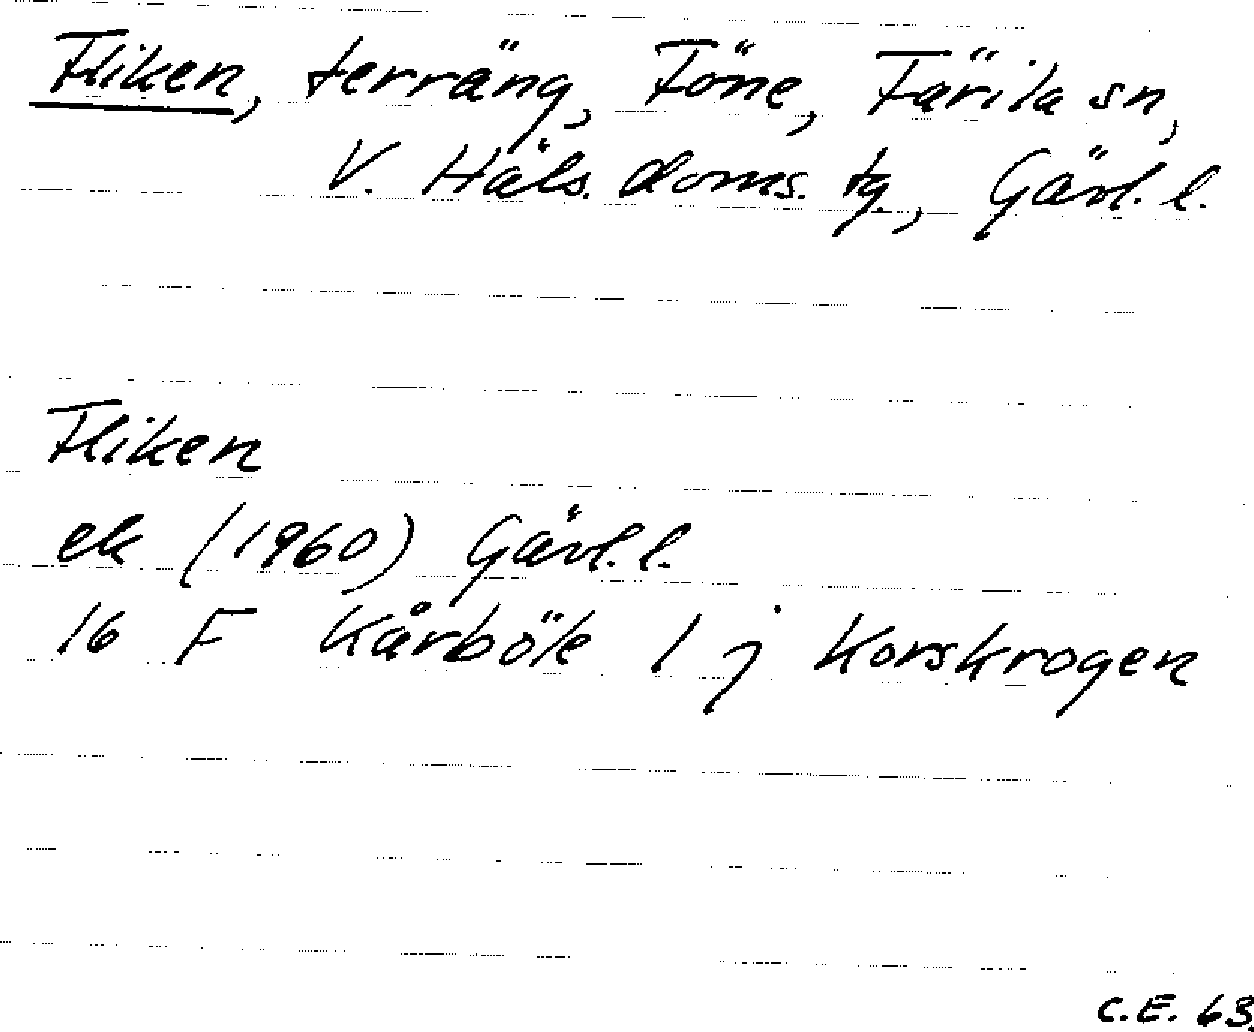 Fliken, terräng, Föne, Färila sn,
V. Häls. doms. tg., Gävl. l.
Fliken
ek (1960) Gävl. l.
16 F Kårböle 1 j Korskrogen
C.E. 63.